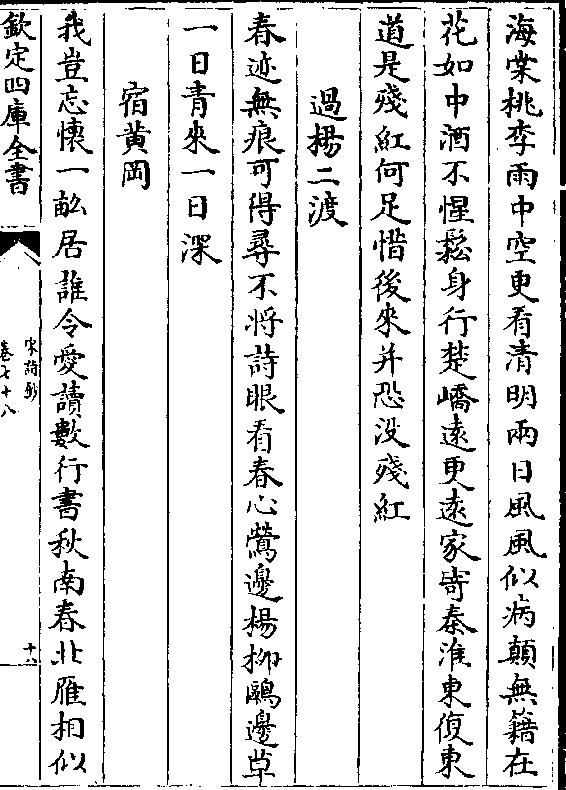 海棠桃李雨中空更看清明兩日風風似病顛無籍在
花如中酒不惺鬆身行楚嶠遠更遠家寄秦淮東復東
道是殘紅何足惜後來并恐没殘紅
過楊二渡
春迹無痕可得尋不將詩眼看春心鶯邊楊栁鷗邊草
一日青來一日深
宿黄岡
我豈忘懷一畝居誰令愛讀數行書秋南春北雁相似
欽定四庫全書
宋詩鈔
卷七十八
十八